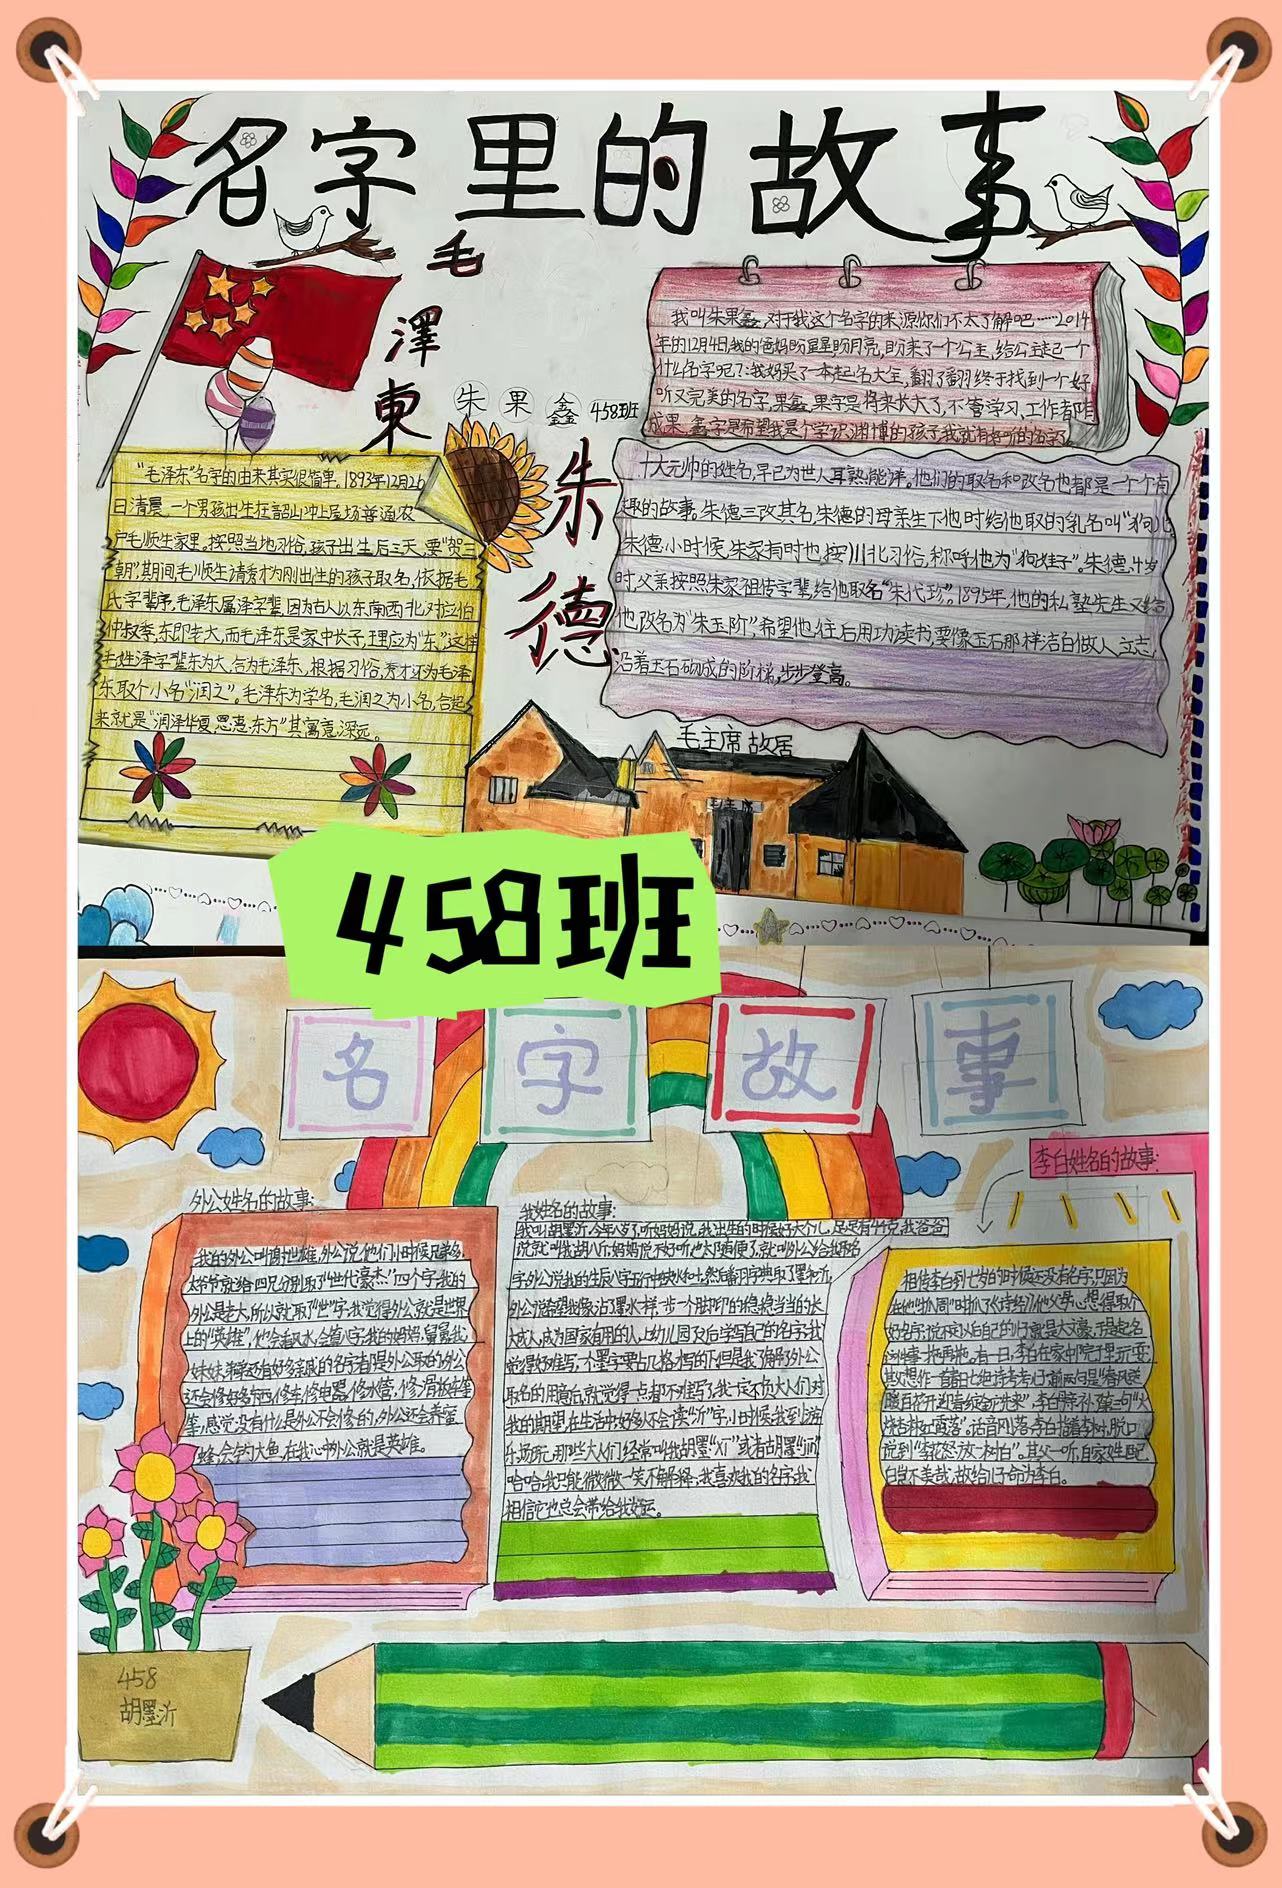 名字里的故事
毛
澤
東
朱果鑫 458班
我叫朱果鑫,对于我这个名字的来源你们不太了解吧……2014
年的12月4日,我的爸妈盼星星盼月亮,盼来了一个公主,给公主起一个
什么名字呢?:我妈买了一本起名大全,翻了翻终于找到一个好
听又完美的名字,果鑫,果字是将来长大了,不管学习,工作者有
成果,鑫字是希望我是个学识渊博的孩子,我就有好听的名字
朱
德
"毛泽东"名字的由来其实很简单。1893年12月26
日清晨,一个男孩出生在韶山冲上屋场普通农
户毛顺生家里。按照当地习俗,孩子出生后三天,要"贺三
朝",期间毛顺生请秀才为刚出生的孩子取名,依据毛
氏字辈序,毛泽东属泽字辈,因为古人以东南西北对应伯
仲叔季,东即老大,而毛泽东是家中长子,理应为"东"这样
毛姓泽字辈东为大,合为毛泽东,根据习俗,秀才还为毛泽
东取个小名"润之"。毛泽东为学名,毛润之为小名,合起
来就是"润泽华夏,恩惠东方"其寓意深远。
十大元帅的姓名,早已为世人耳熟能详。他们的取名和改名也都是一个个有
趣的故事。朱德三改其名,朱德的母亲生下他时给他取的乳名叫"狗儿
朱德小时候,朱家有时也按川北习俗,称呼他为"狗娃子"。朱德,4岁
时,父亲按照朱家祖传字辈,给他取名"朱代珍"。1895年,他的私塾先生又给
他,改名为"朱玉阶",希望他往后用功读书,要像玉石那样洁白做人、立志,
沿着玉石砌成的阶梯,步步登高。
毛主席故居
458班
名字故事
李白姓名的故事:
外公姓名的故事:
我的外公叫谢世雄,外公说,他们小时候兄弟多,
太爷爷就给四兄分别取了"世代豪杰"四个字,我的
外公是老大,所以就取了"世"字,我觉得外公就是世界
上的"英雄",他会看风水,会算八字,我的妈妈,舅舅,我,
妹妹,弟弟还有好多亲戚的名字都是外公取的,外公
还会修好多东西,修车,修电器,修水管,修滑板车等
等,感觉没有什么是外公不会修的,外公还会养蜜
蜂,会钓大鱼,在我心中外公就是英雄。
我姓名的故事:
我叫胡墨沂,今年八岁了,听妈妈说,我出生的时候好大个儿,足足有4千克,我爸爸
说就叫我胡八斤,妈妈说不好听,也太随便了,就叫外公给我取名
字,外公说我的生辰八字五行中缺水和土,然后翻字典取了墨和沂,
外公说希望我像沾了墨水一样,一步一个脚印的稳稳当当的长
大成人,成为国家有用的人,上幼儿园以后学写自己的名字,我
觉得好难写,不墨字要占几格,写的下,但是我了解了外公
取名的用意后,就觉得一点都不难写了,我一定不负大人们对
我的期望,在生活中好多人不会读"沂"字,小时候,我到游
乐场玩,那些大人们经常叫我胡墨"xī"或者胡墨"jīn"
哈哈,我只能微微一笑不解释,我喜欢我的名字,我
相信它也总会带给我好运。
相传李白到七岁的时候还没有名字,只因为
在他"抓周"时抓了《诗经》,他父母心想,得取个
好名字,说不定以后自己的儿子就是大文豪,于是起名
这件事一拖再拖。有一日,李白在家中院子里玩耍,
其父想作一首春日七绝诗考考儿子,前两句是"春风送
暖百花开,迎春绽金它先来",李白母亲补了第三句"火
烧杏林红霞落"。话音刚落,李白指着李树,脱口
说到"李花怒放一树白"。其父一听,自家姓李配
白岂不美哉,故给儿子命为李白。
458
胡墨沂